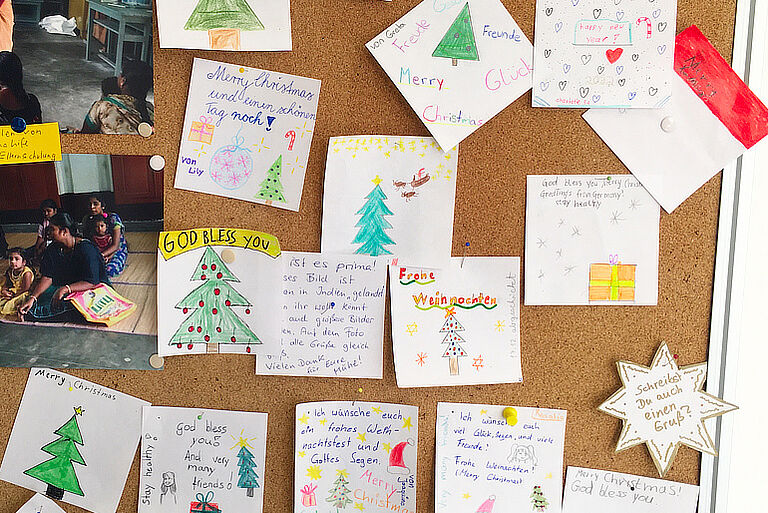 von Greta
Freude
Glück
Freunde
Merry
Glück
Christmas
Happy new
year?
Merry Christmas
und einen schönen
Tag noch!
von
Lily
len von
hilfe
Elternschulung
God bless you, Merry Chris
Greetings from Germany!
stay healthy
GOD BLESS YOU
ist es prima!
ses Bild ist
on in Indien gelandet
ihr wollt könnt
auch größere Bilder
en. Auf dem Foto
alle Grüße gleich
ß.
Vielen Dank Eure
für Mühe!
Frohe
Weihnachten
Schreibst
Du auch
einen
Gruß?
Merry Christmas
God bless
you?
And very
many
friends
Stay healthy?
Ich wünsche euch
ein frohes Weih-
nachtsfest und
Gottes Segen.
Merry
Christmas
Ich wünsch euch
viel Glück, Segen, und viele
Freunde!
Frohe Weihnachten!
(Merry Christmas)
Merry Christmas!
God bless you